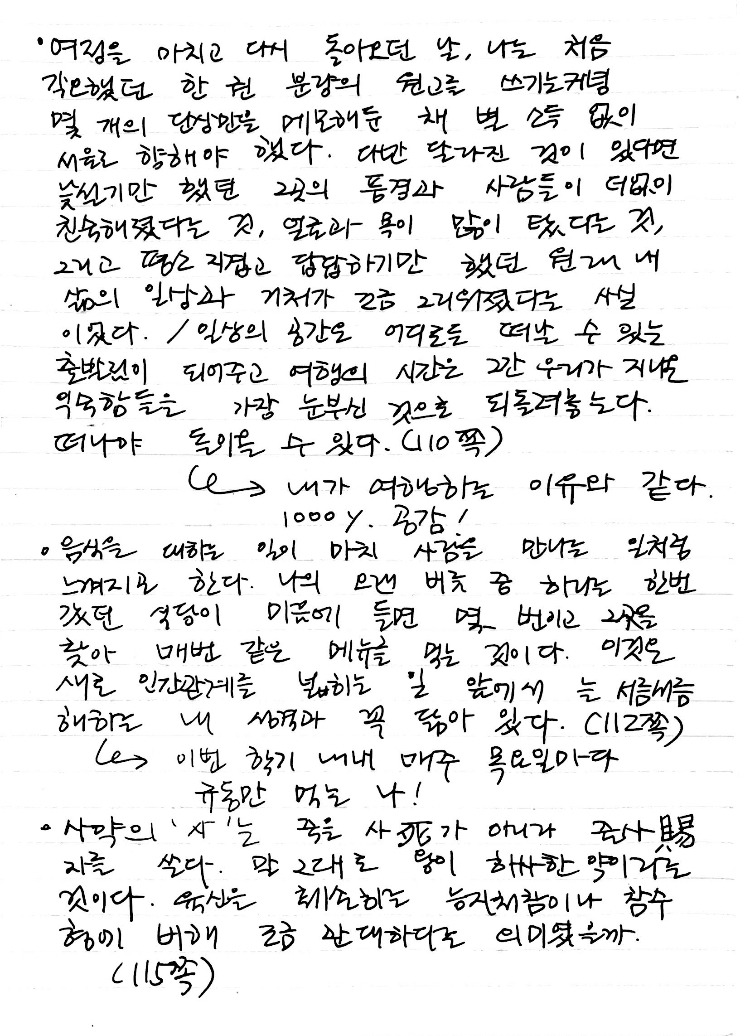 • 여정을 마치고 다시 돌아오던 날, 나는 처음
각오했던 한 권 분량의 원고를 쓰기는커녕
몇 개의 단상만을 메모해둔 채 별 소득 없이
서울로 향해야 했다. 다만 달라진 것이 있다면
낯설기만 했던 그곳의 풍경과 사람들이 더없이
친숙해졌다는 것, 얼굴과 목이 많이 탔다는 것,
그리고 평소 지겹고 답답하기만 했던 원래 내
삶의 일상과 거처가 조금 그리워졌다는 사실
이었다. / 일상의 공간은 어디로든 떠날 수 있는
출발선이 되어주고 여행의 시간은 그간 우리가 지나온
익숙함들을 가장 눈부신 것으로 되돌려놓는다.
떠나야 돌아올 수 있다. (110쪽)
↳ 내가 여행하는 이유와 같다.
1000%. 공감!
• 음식을 대하는 일이 마치 사람을 만나는 일처럼
느껴지도 한다. 나의 오랜 버릇 중 하나는 한번
갔던 식당이 마음에 들면 몇 번이고 그곳을
찾아 매번 같은 메뉴를 먹는 것이다. 이것은
새로 인간관계를 넓히는 일 앞에서 늘 서름서름
해하는 내 성격과 꼭 닮아 있다. (112쪽)
↳ 이번 학기 내내 매주 목요일마다
규동만 먹는 나!
• 사약의 '사'는 죽을 사死가 아니라 줄 사賜
자를 쓴다. 말 그대로 왕이 하사한 약이라는
것이다. 육신을 훼손하는 능지처참이나 참수
형에 비해 조금 관대하다는 의미였을까.
(115쪽)